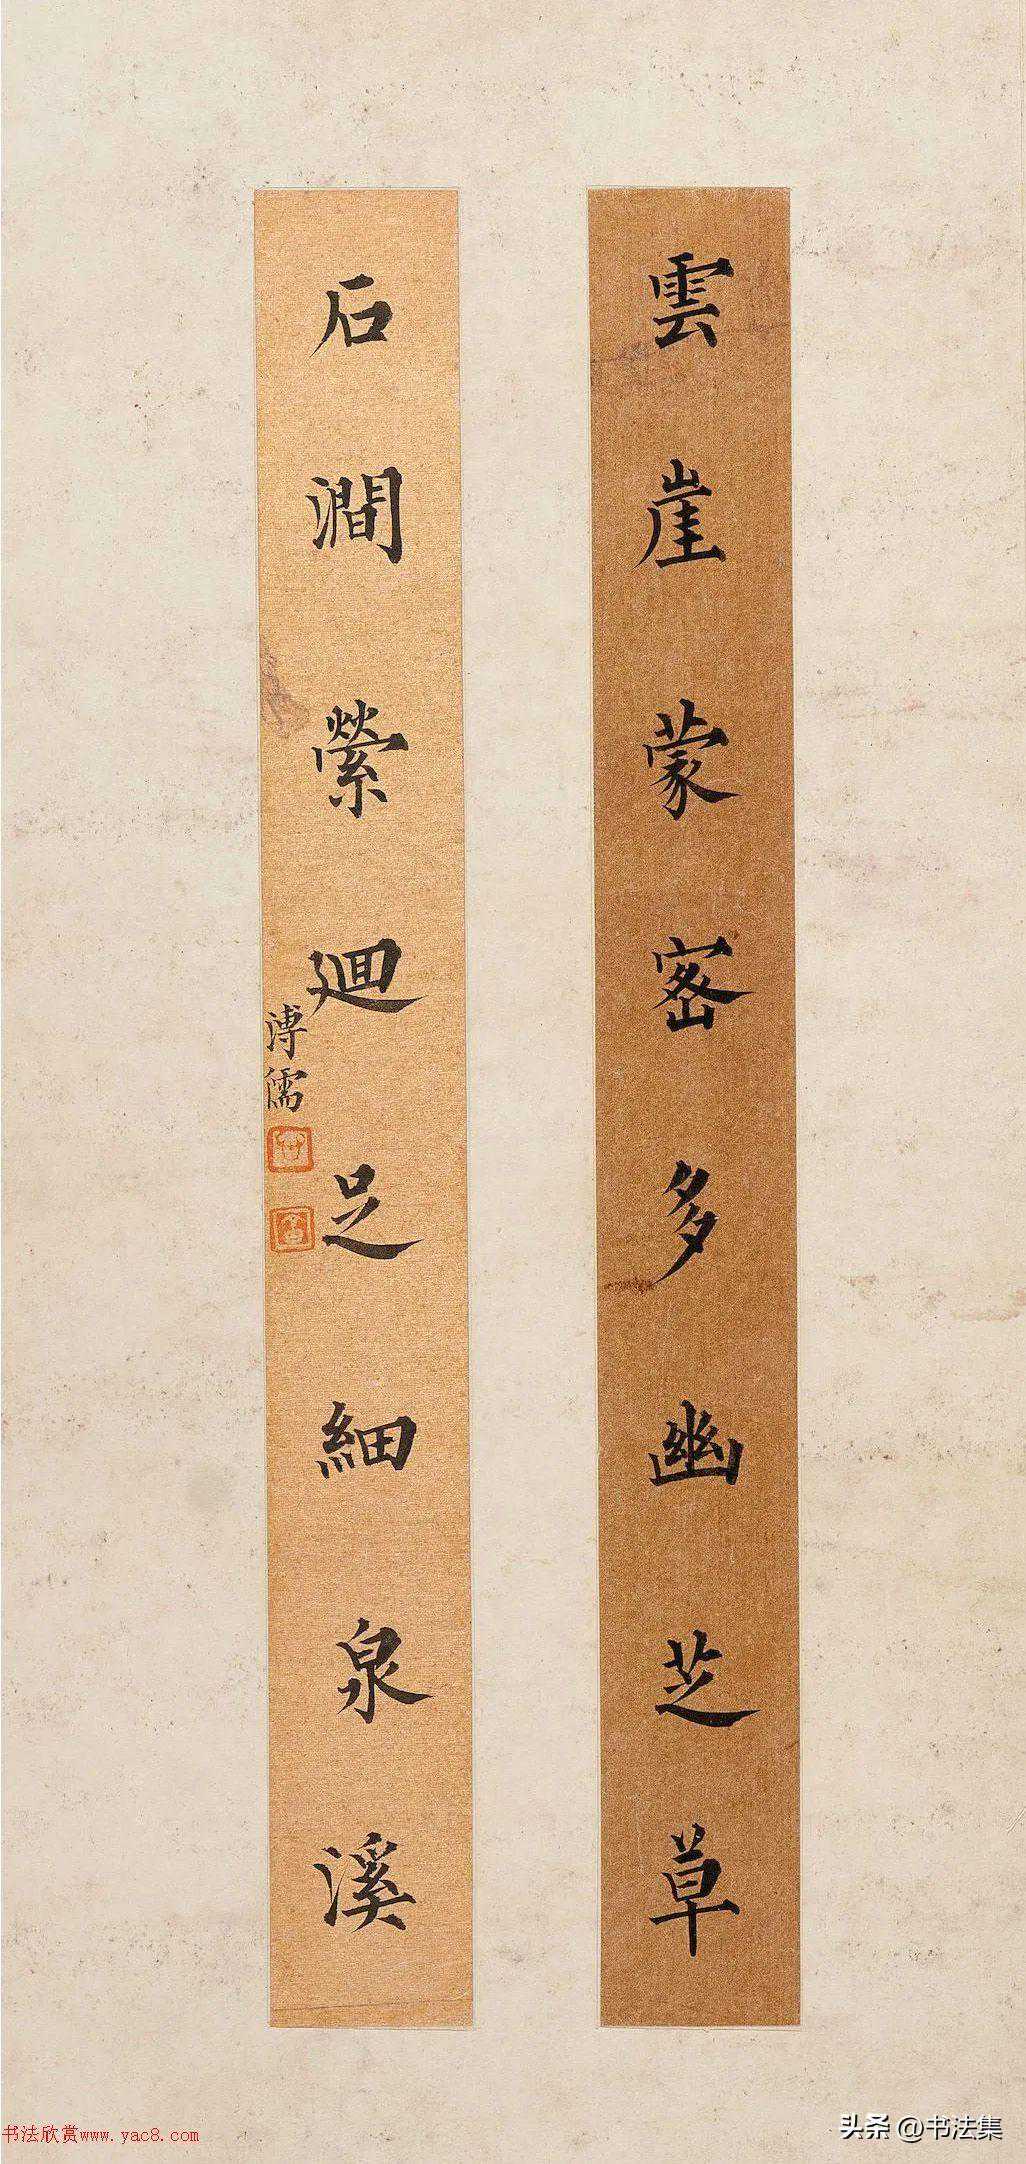 雲崖蒙密多幽芝草
石澗縈迴足細泉溪
溥儒
书法欣赏www.yac8.com
头条 @书法集